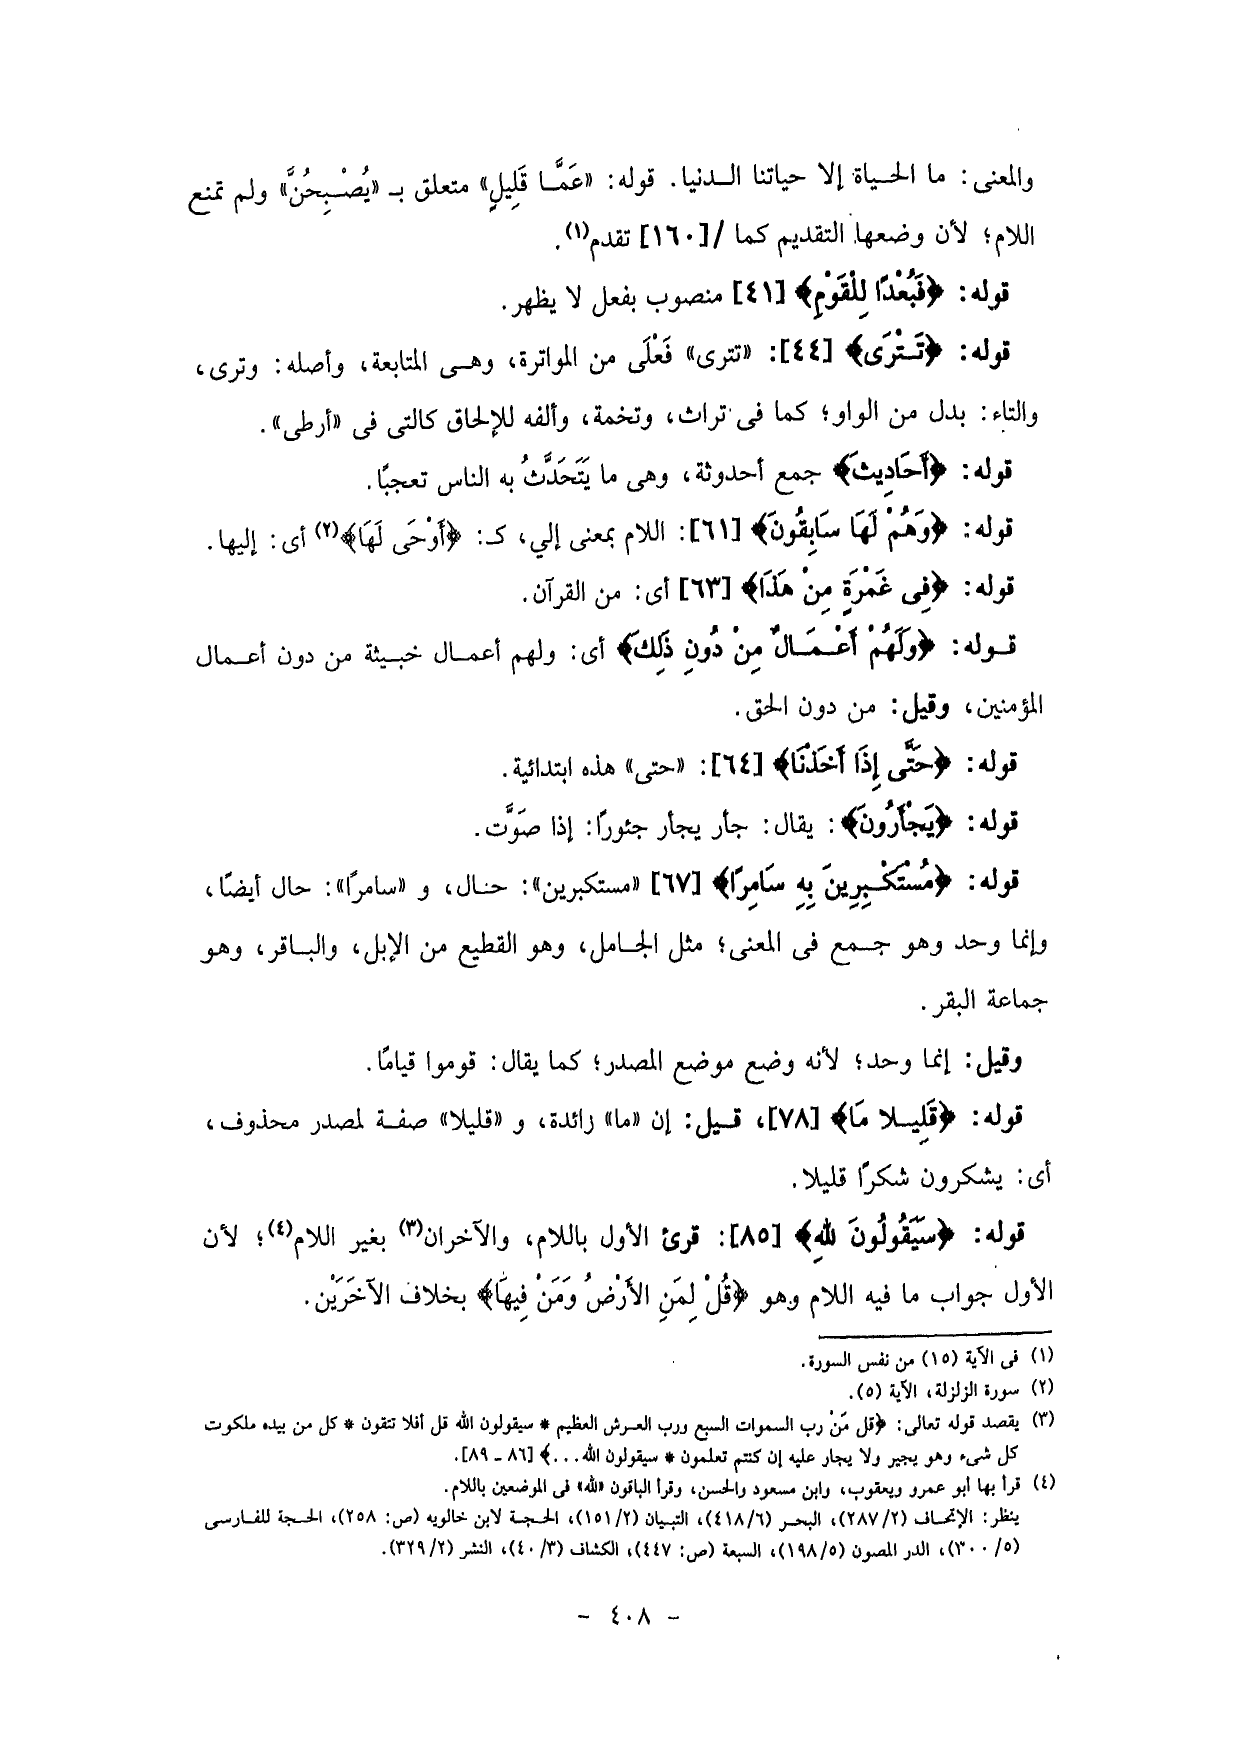 والمعنى: ما الحياة إلا حياتنا الدنيا. قوله: «عَمَّا قَلِيلٍ» متعلق بـ «يُصْبِحُنَّ» ولم تمنع
اللام؛ لأن وضعها التقديم كما /[١٦٠] تقدم(١).
قوله: ﴿فَبُعْدًا لِلْقَوْمِ﴾ [٤١] منصوب بفعل لا يظهر.
قوله: ﴿تَتْرَى﴾ [٤٤]: «تترى» فَعْلَى من المواترة، وهى المتابعة، وأصله: وترى،
والتاء: بدل من الواو؛ كما فى تراث، وتخمة، وألفه للإلحاق كالتى فى «أرطى».
قوله: ﴿أَحَادِيثَ﴾ جمع أحدوثة، وهى ما يَتَحَدَّثُ به الناس تعجبًا.
قوله: ﴿وَهُمْ لَهَا سَابِقُونَ﴾ [٦١]: اللام بمعنى إلي، كـ: ﴿أَوْحَى لَهَا﴾(٢) أى: إليها.
قوله: ﴿فِى غَمْرَةٍ مِنْ هَذَا﴾ [٦٣] أى: من القرآن.
قوله: ﴿وَلَهُمْ أَعْمَالٌ مِنْ دُونِ ذَلِكَ﴾ أى: ولهم أعمال خبيثة من دون أعمال
المؤمنين، وقيل: من دون الحق.
قوله: ﴿حَتَّى إِذَا أَخَذْنَا﴾ [٦٤]: «حتى» هذه ابتدائية.
قوله: ﴿يَجْأَرُونَ﴾: يقال: جأر يجأر جئورًا: إذا صَوَّت.
قوله: ﴿مُسْتَكْبِرِينَ بِهِ سَامِرًا﴾ [٦٧] «مستكبرين»: حال، و «سامرًا»: حال أيضًا،
وإنما وحد وهو جمع فى المعنى؛ مثل الجامل، وهو القطيع من الإبل، والباقر، وهو
جماعة البقر.
وقيل: إنما وحد؛ لأنه وضع موضع المصدر؛ كما يقال: قوموا قيامًا.
قوله: ﴿قَلِيلا مَا﴾ [٧٨]، قيل: إن «ما» زائدة، و «قليلا» صفة لمصدر محذوف،
أى: يشكرون شكرًا قليلا.
قوله: ﴿سَيَقُولُونَ لِلهِ﴾ [٨٥]: قرئ الأول باللام، والآخران(٣) بغير اللام(٤)؛ لأن
الأول جواب ما فيه اللام وهو ﴿قُلْ لِمَنِ الأَرْضُ وَمَنْ فِيهَا﴾ بخلاف الآخَرَيْن.
(١) فى الآية (١٥) من نفس السورة.
(٢) سورة الزلزلة، الآية (٥).
(٣) يقصد قوله تعالى: ﴿قل مَنْ رب السموات السبع ورب العرش العظيم * سيقولون الله قل أفلا تتقون * كل من بيده ملكوت
كل شىء وهو يجير ولا يجار عليه إن كنتم تعلمون * سيقولون الله...﴾ [٨٦ ـ ٨٩].
(٤) قرأ بها أبو عمرو ويعقوب، وابن مسعود والحسن، وقرأ الباقون «لله» فى الموضعين باللام.
ينظر: الإتحاف (٢/٢٨٧)، البحر (٦/٤١٨)، التبيان (٢/١٥١)، الحجة لابن خالويه (ص: ٢٥٨)، الحجة للفارسى
(٥/٣٠٠)، الدر المصون (٥/١٩٨)، السبعة (ص: ٤٤٧)، الكشاف (٣/٤٠)، النشر (٢/٣٢٩).
- ٤٠٨ -